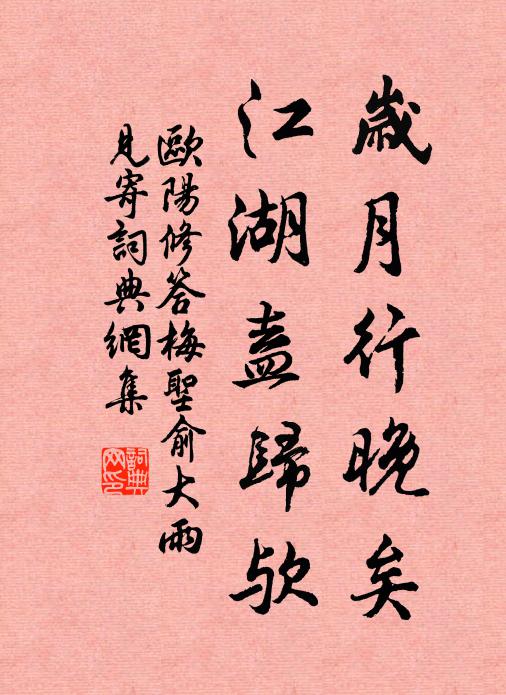 歲月行晚矣
江湖盍歸歟
歐陽修答梅聖俞大雨
見寄詞典網集
詞典網印